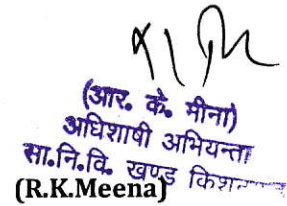 (आर. के. मीना)
अधिशाषी अभियन्ता
सा.नि.वि. खण्ड
(R.K.Meena)